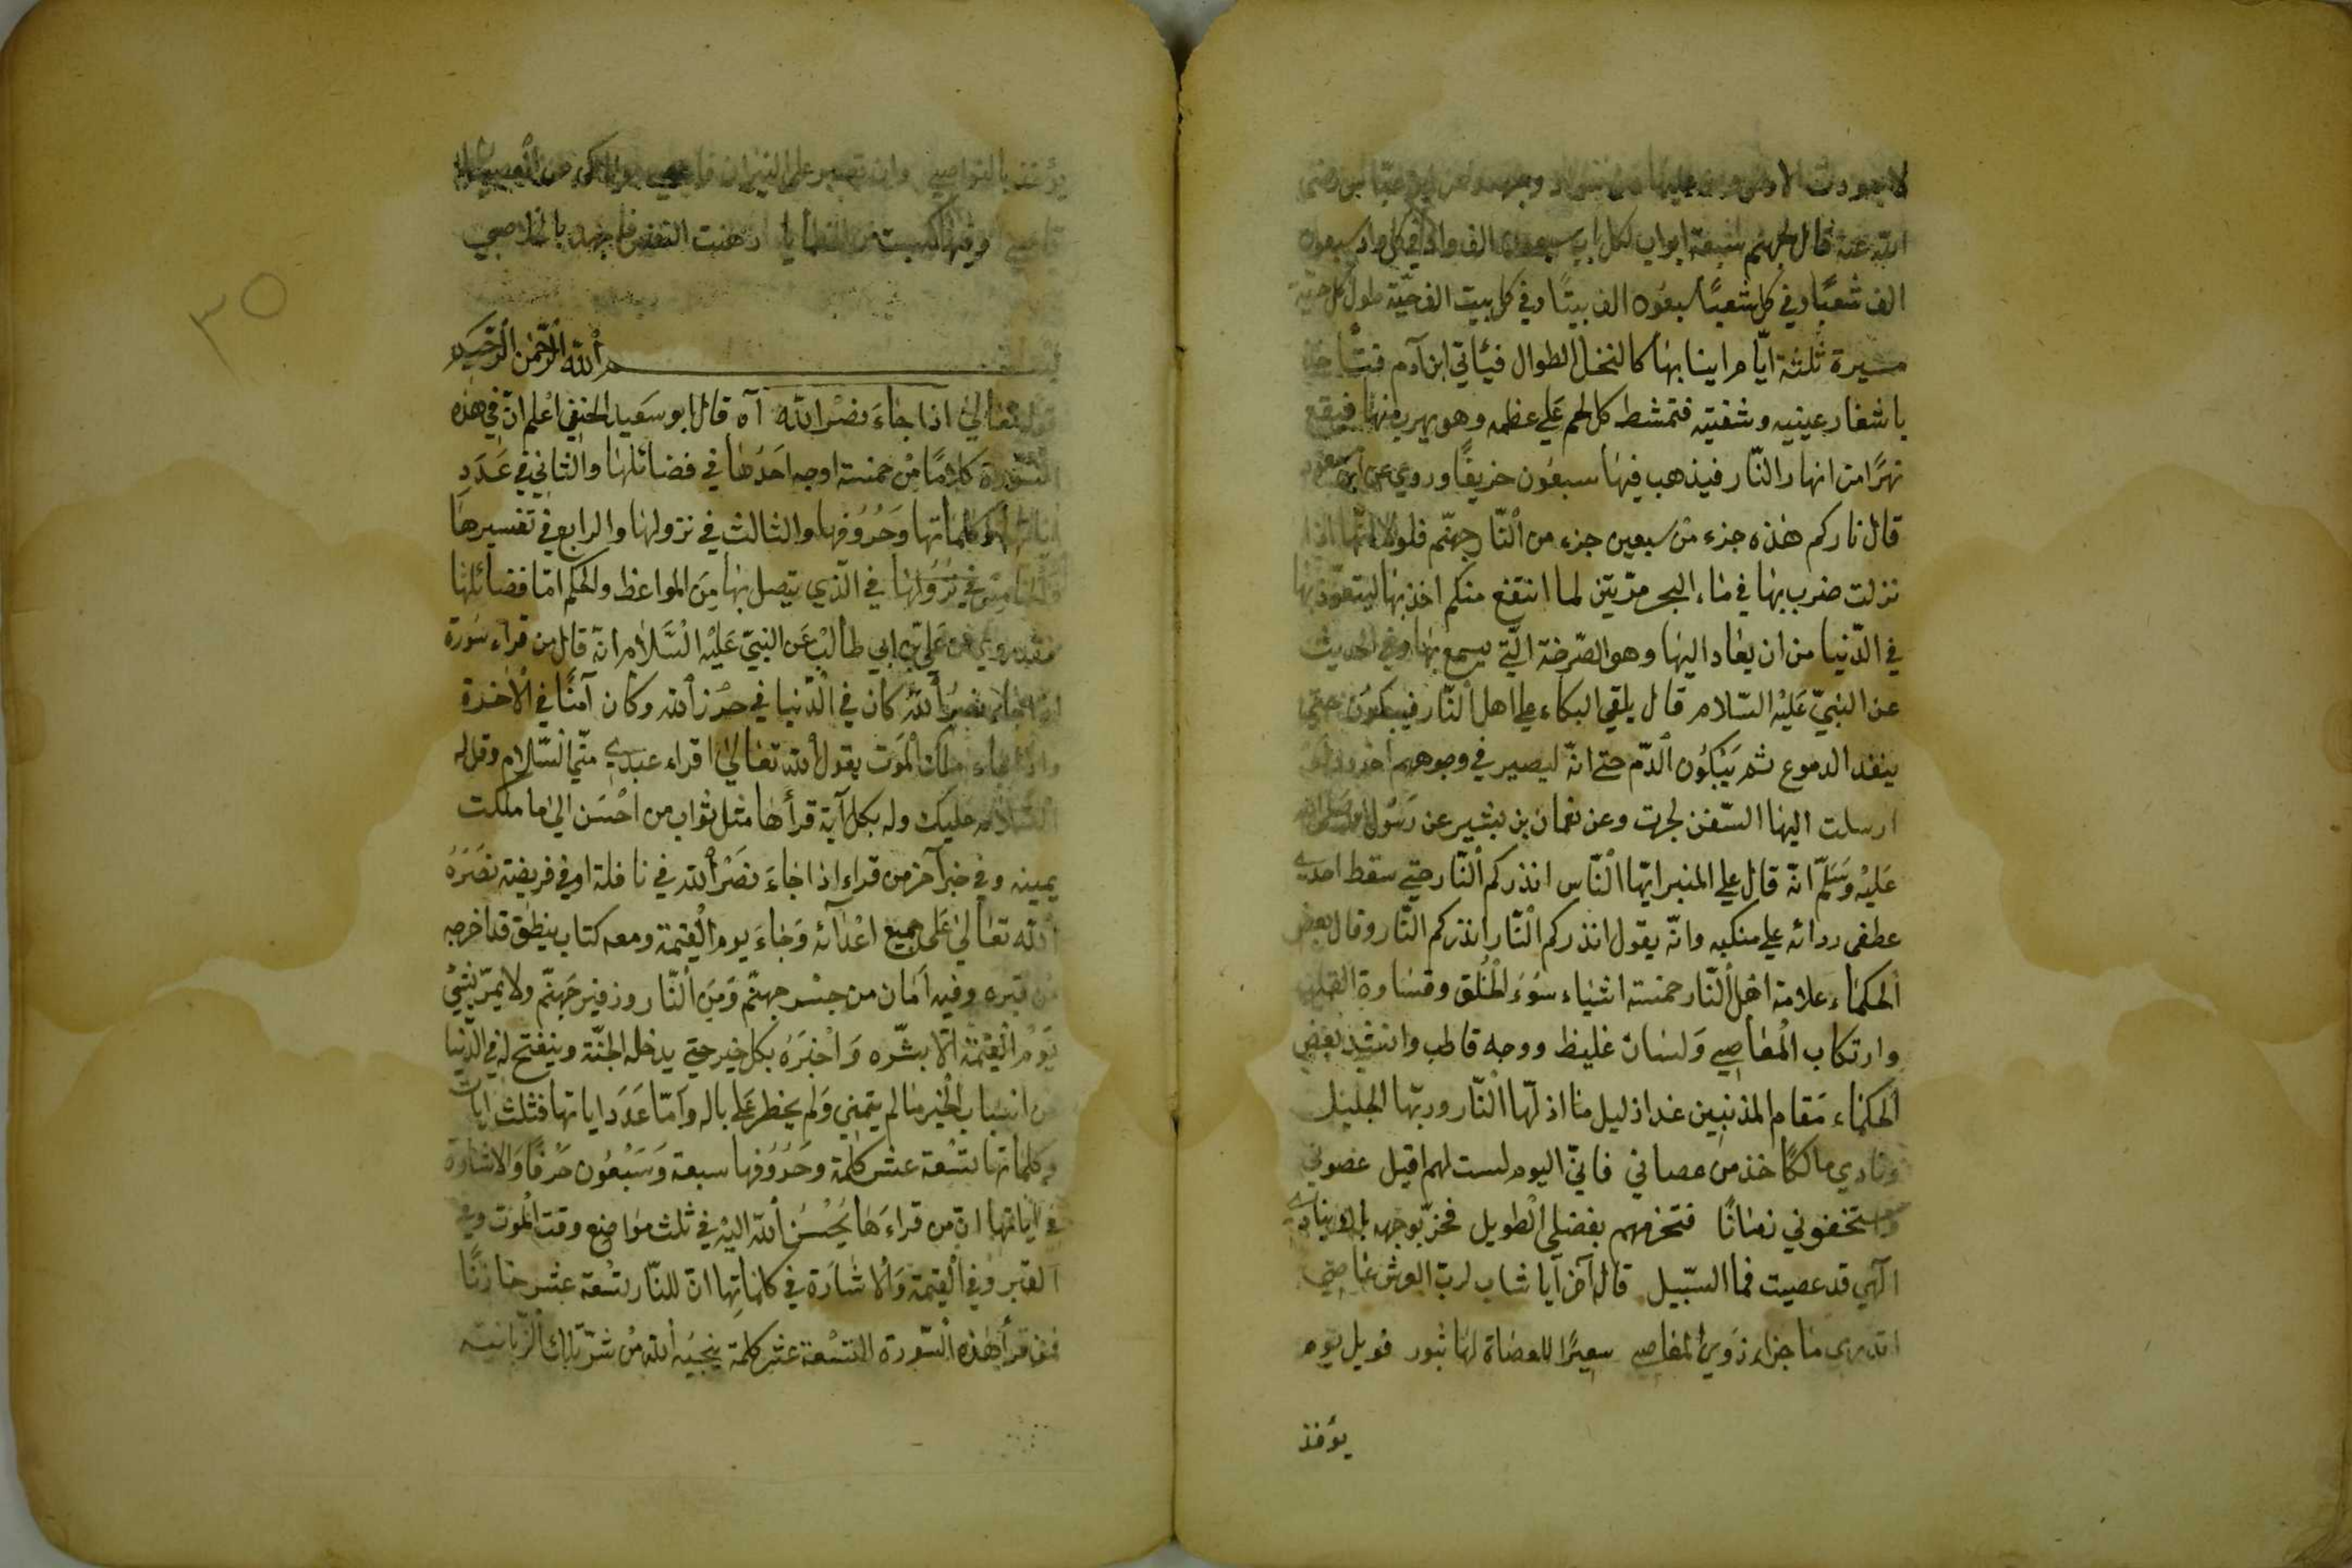 الله عنه قال لجهنم سبعة ابواب لكل باب سبعون الف واد في كل واد سبعون
الف شعبًا وفي كل شعبًا سبعون الف بيتًا وفي كل بيت الف حيّة طول كل حيّة
مسيرة ثلثة ايّام اينابها كالنخل الطوال فيأتي ابن آدم
باشفار عينيه وشفتيه فتمشط كل لحم على عظمه وهو يهرب منها فيقع
نهرًا من انهار النّار فيذهب فيها سبعون خريفًا وروي عن ابن
قال ناركم هذه جزء من سبعين جزء من النّار جهنّم فلولا انّها
نزلت ضرب بها في ماء البحر مرّتين لما انتفع منكم اخذ بها ليتعوّذ بها
في الدّنيا من ان يعاد اليها وهو الصّرخة الّتي يسمع بها وفي الحديث
عن النبيّ عَليْه السّلام قال يلقي البكاء على اهل النّار فيبكون حتى
ينفد الدموع ثم يَبْكون الدّم حتى انّه ليصير في وجوههم اخدود
ارسلت اليها السّفن لجرت وعن نعمان بن بشير عن رَسُول الله صلى الله
عَليْه وَسَلّم انّه قال على المنبر ايّها النّاس انذركم النّار حتى سقط احدى
عطفى ردائه على منكبيه وانّه يقول انذركم النّار انذركم النّار وقال بعض
الحكماء علامة اهل النّار خمسة اشياء سُوءُ الخُلق وقساوة القلب
وارتكاب المعاصي وَلسان غليظ ووجه قاطب وانشد بعض
الحكماء مَقام المذنبين غدا ذليل ما اذلّها النّار وربّها الجليل
ونادي مالكًا خذ من عصاني فانّي اليوم لست لهم اقيل عصوني
واستخفوني زمانًا فتخرمهم بفضلي الطويل فخرّ بوجهه ينادي
الٓهي قد عصيت فما السّبيل قال آخر آيا شاب لربّ العرش عاصى
اتدري ما جزاء ذوي المعاصي سعيرًا للعصاة لها ثبور فويل يوم
يؤخذ
يؤخذ بالنواصي وان تصبر على النيران
وفيما كسبت من الخطايا رهنت النفس فاجهد بالخلاصي
بسم الله الرّحمن الرّحيم
قوله تعالى اذا جاءَ نصْر الله آه قال ابو سَعيد الحنفي اعْلم انّ في هذه
السّورة كلامًا مِن خمسة اوجه احَدُها في فضائلها والثاني في عَدَدِ
آياتها وكلماتها وَحُرُوفها والثالث في نزولها والرابع في تفسيرها
والخامس في نزولها في الّذي يتصل بها مِنَ المواعظ والحكم امّا فضائلها
فقد روي عن عَلي بن ابي طالب عَن النبيّ عَليْه السَّلام انّه قال من قراء سُورة
اذا جاء نصرُ اللهُ كان في الدّنيا في حرْز الله وكان آمنًا في الاخرة
واذا جاء ملك المَوت يقول الله تعالى اقراء عبدي منّي السّلام وقل له
السّلام عليك وله بكل آية قرأها مثل ثواب من احْسَن الى ما ملكت
يمينه وفي خبر آخر من قراء اذا جاءَ نصْر الله في نافلة او في فريضة نصَرَهُ
الله تعالى عَلى جميع اعْدائه وَجاءَ يوم القيٰمة ومعه كتاب ينطق قد اخرجه
من قبره وفيه اَمَان من جسْر جهنّم وَمِنَ النّار وزفير جَهنّم ولا يمرّ بشيْ
يَوْم القيٰمة الّا بشّره وَاخْبَرَهُ بكل خير حتى يدخله الجنّة وينفتح له في الدّنيا
من اسباب الخير ما لم يتمني وَلم يخطر عَلى باله وامّا عَدَد اياتها فثلث ايات
وكلماتها تسْعة عشر كلمة وَحُرُوفها سبعة وَسَبْعُون حَرْفًا وَالاشارة
في آياتها انّ من قراءَها يُحْسَن الله اليْه في ثلث مواضع وقت المَوت وفي
القبر وَفي القيٰمة وَالاشارة في كلماتِها انّ للنّار تسْعة عشر خازنًا
فمن قرأ هٰذه السّورة التسْعة عشر كلمة ينجيه الله من شرّ تلك الزّبانية
٣٥